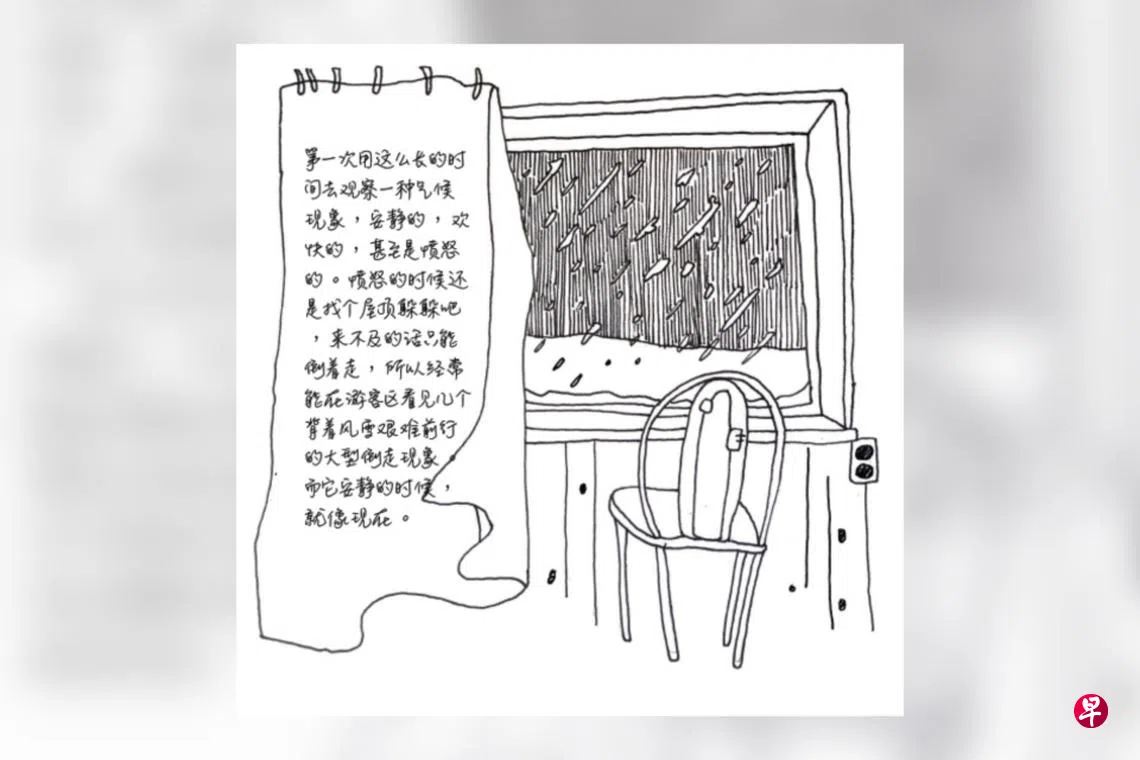 第一次用这么长的时
间去观察一种气候
现象，安静的，欢
快的，甚至是愤怒
的。愤怒的时候还
是找个屋顶躲躲吧
，来不及的话只能
倒着走，所以经常
能在游客区看见几个
背着风雪艰难前行
的大型倒走现象。
而它安静的时候，
就像现在。
早